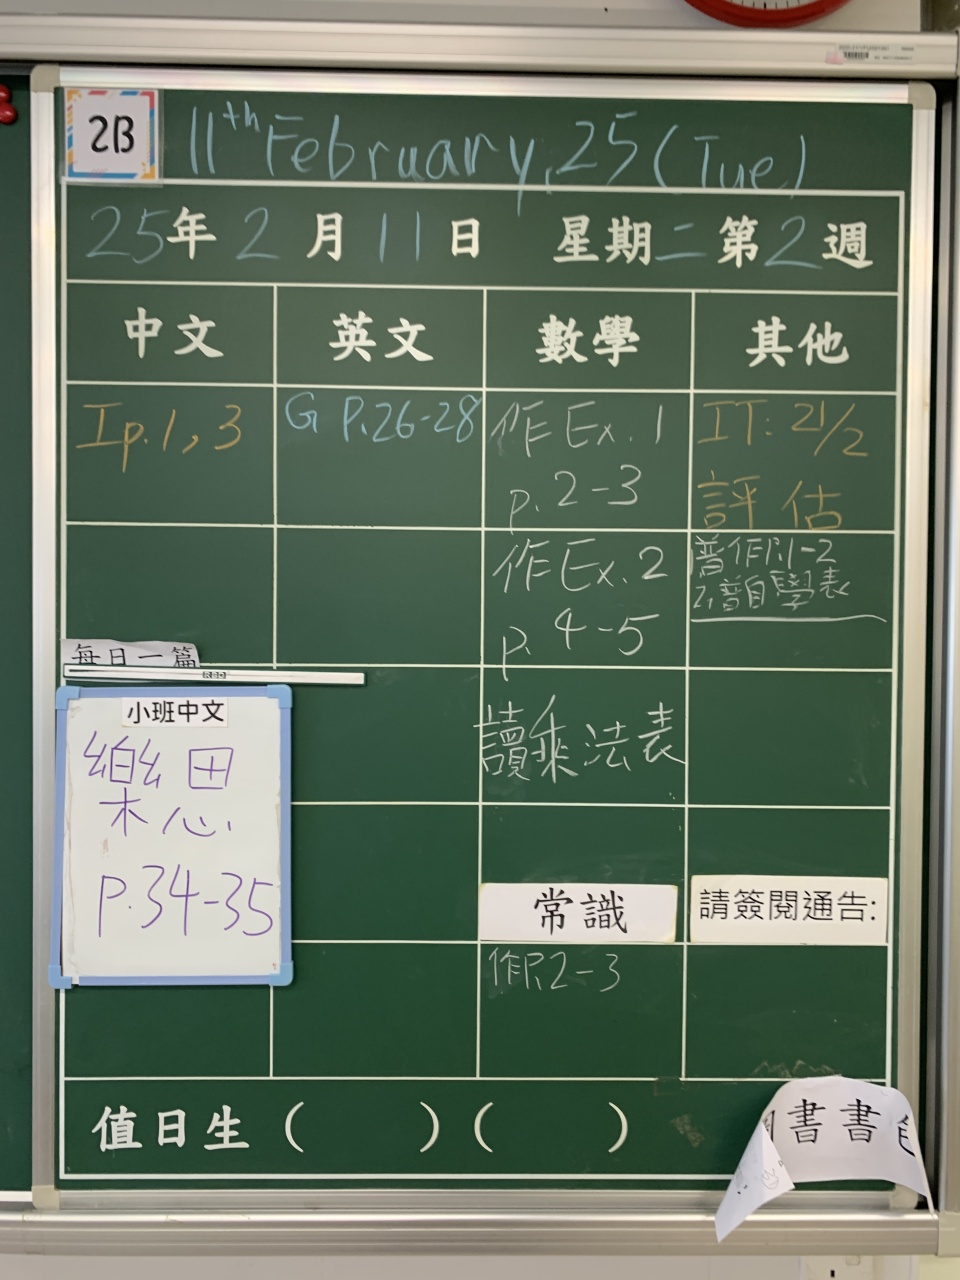 2B
11th February, 25 (Tue)
25年2月11日 星期二第2週
中文 英文 數學 其他
Ip.1,3
G P.26-28
作Ex.1
p.2-3
IT: 21/2
評估
作Ex.2
p.4-5
普作P.1-2
普自學表
每日一篇
小班中文
樂思
P.34-35
讀乘法表
常識
請簽閱通告:
作P.2-3
值日生 ( ) ( )
書書